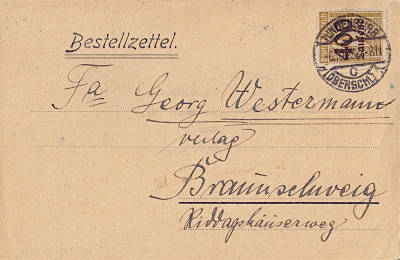 HINDENBURG
40
(OBERSCHL)
c
Bestellzettel.
Fa Georg Westermann
verlag
Braunschweig
Riddagshäuserweg